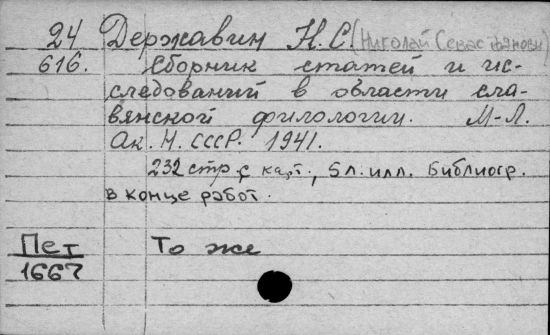 24 Державин Н.С. (Николай Севастьянович)
616. Сборник статей и ис-
следований в области сла-
вянской филологии. М-Л.
Ак. Н. СССР. 1941.
232 стр. с карт., 5 л. илл. Библиогр.
в конце работ.
Пет То же
1667